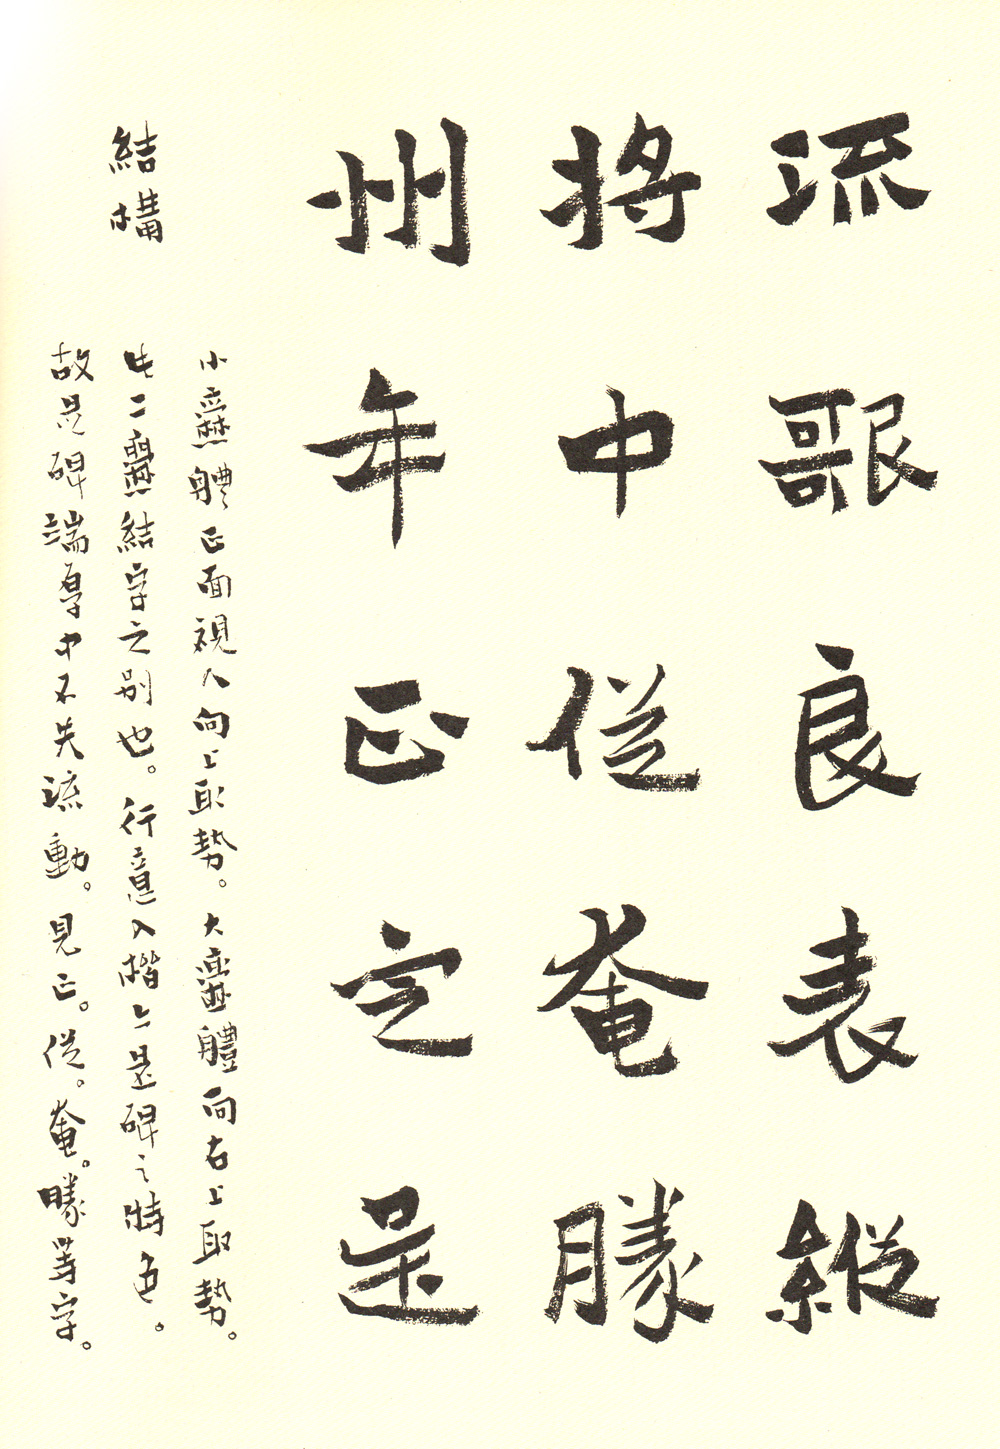 流歌良表縱
將中從奄勝
州年正定是
小爨體正面視人向上取勢。大爨體向右上取勢。
此二爨結字之別也。行意入楷亦是碑之特色。
結構
故是碑端厚中不失流動。見正。從。奄。勝等字。